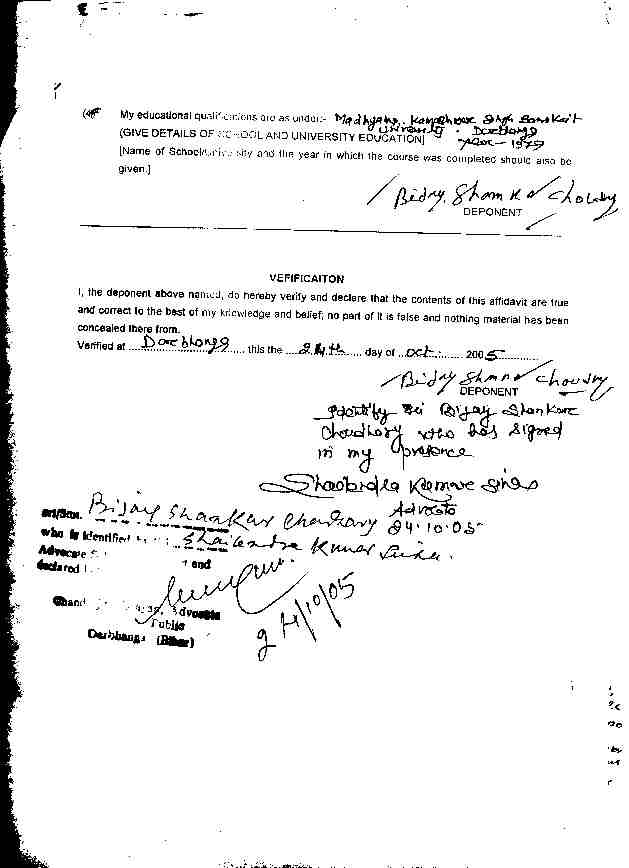 My educational qualifications are as under:- Madhyama, Kameshwar Singh Sanskrit
University. Darbhanga
(GIVE DETAILS OF SCHOOL AND UNIVERSITY EDUCATION] year - 1979
[Name of School/University and the year in which the course was completed should also be
given.]
Bijay Shankar Chowdhry
DEPONENT
VERIFICAITON
I, the deponent above named, do hereby verify and declare that the contents of this affidavit are true
and correct to the best of my knowledge and belief; no part of it is false and nothing material has been
concealed there from.
Verified at Darbhanga this the 24th day of Oct. 2005
Bijay Shankar Chowdhry
DEPONENT
Identify Sri Bijay Shankar
Choudhary who has signed
in my presence
Shailendra Kumar Sinha
Advocate
24.10.05
Sri/Smt. Bijay Shankar Chaudhary
who is identified Shailendra Kumar Sinha.
Advocate and
declared
Advocate
Public
Darbhanga (Bihar)
24/10/05